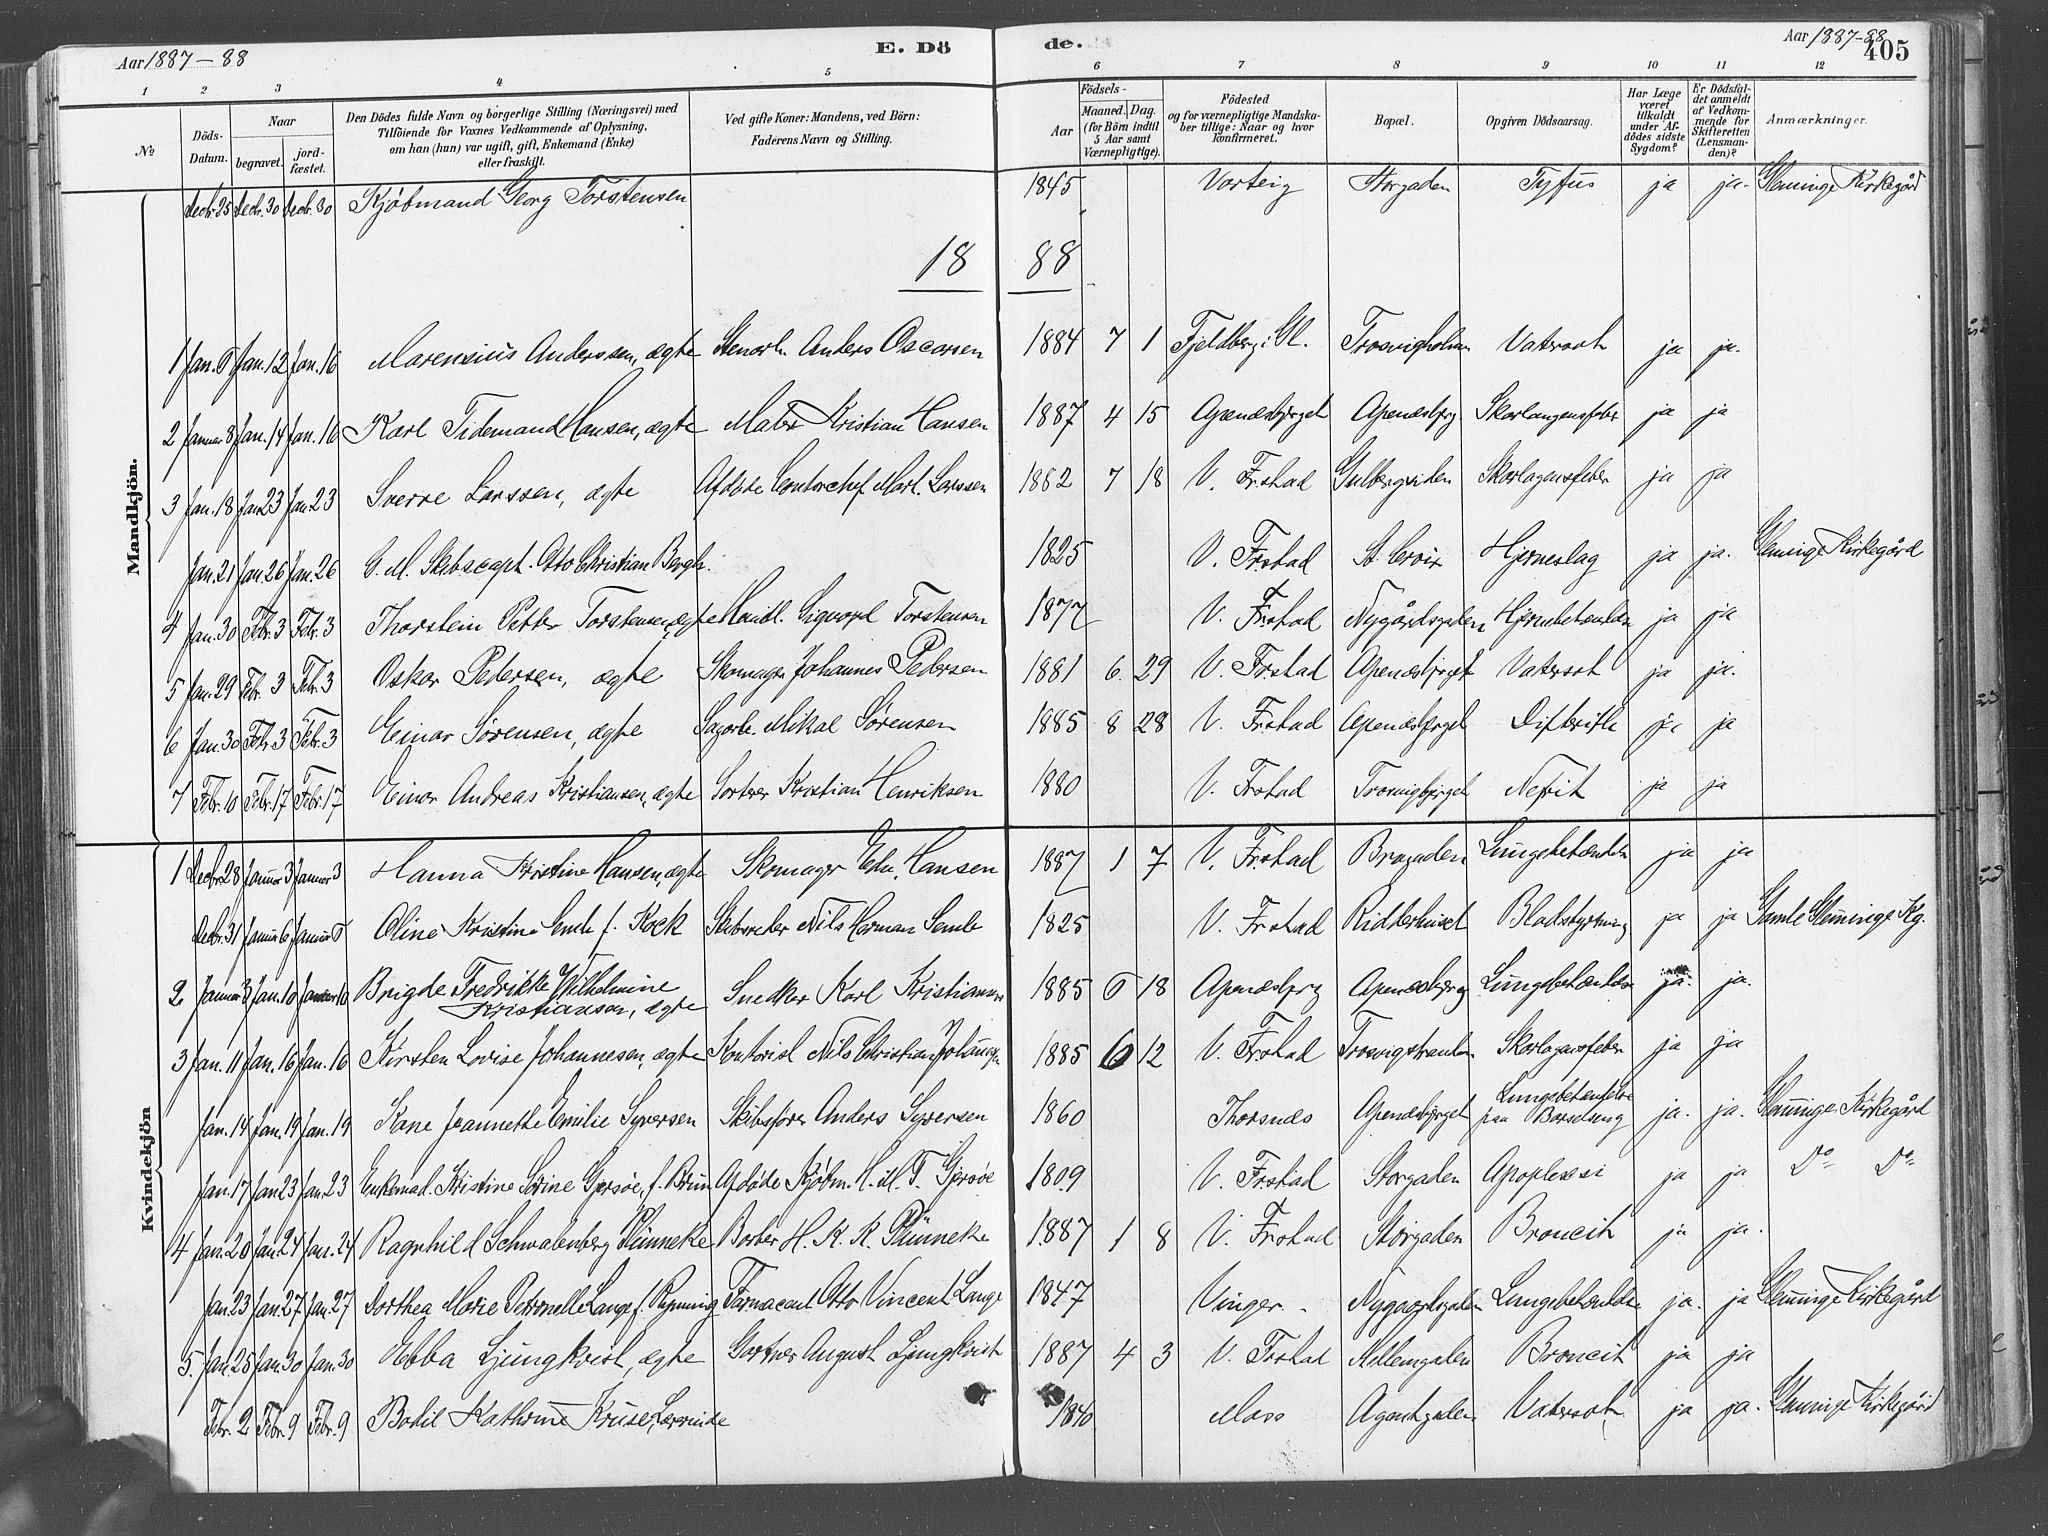 Aar 1887-88
E. Dö
de.
Aar 1887-88
405
1 2 3 4 5 6 7 8 9 10 11 12
No
Döds-Datum.
Naar
begravet. jord-fæstet.
Den Dödes fulde Navn og borgerlige Stilling (Næringsvei) med
Tilföiende for Voxnes Vedkommende af Oplysning,
om han (hun) var ugift, gift, Enkemand (Enke)
eller fraskilt.
Ved gifte Koner: Mandens, ved Börn:
Faderens Navn og Stilling.
Födsels-
Aar Maaned. Dag.
(for Börn indtil 5 Aar samt Værnepligtige).
Födested
og for værnepligtige Mandska-
ber tillige: Naar og hvor
konfirmeret.
Bopæl.
Opgiven Dödsaarsag.
Har Læge været tilkaldt under Af-dödes sidste Sygdom?
Er Dödsfal-det anmeldt af Vedkom-mende for Skifteretten (Lensman-den)?
Anmærkninger.
Mandkjön.
Decbr. 25 Decbr. 30 Decbr. 30 Kjøbmand Georg Torstensen 1845 Varteig Storgaden Tyfus ja ja. Glemminge Kirkegård
18 88
1 Jan. 6 Jan. 12 Jan. 16 Marensius Anderssen, ægte Stenarb. Anders Oscarsen 1884 7 1 Fjeldberg i Gl. Trosvigholmen Vatersot ja ja.
2 Januar 8 Jan. 14 Jan. 16 Karl Tidemand Hansen, ægte Maler Kristian Hansen 1887 4 15 Apenæsbjerget Apenæsbjerg. Skarlangensfeber ja ja
3 Jan. 18 Jan 23 Jan. 23 Sverre Larssen, ægte Afdøde Contorchef Marl. Larssen 1882 7 18 V. Frstad Gulbergsiden Skarlagensfeber ja ja
Jan. 21 Jan. 26 Jan. 26 G. M. Skibscapt. Otto Christian Bergh. 1825 V. Frstad St. Croix Hjerneslag ja ja. Glemminge Kirkegård
4 Jan. 30 Febr. 3 Febr. 3 Thorstein Petter Torstensen, ægte Handl. Sigvard Torstensen 1877 V. Frstad Nygårdsgaden Hjernebetændelse ja ja
5 Jan. 29 Febr. 3 Febr. 3 Oskar Pedersen, ægte Skomager Johannes Pedersen 1881 6. 29 V. Frstad Apenæsbjerget Vatersot ja ja.
6 Jan. 30 Febr. 3 Febr. 3 Einar Sørensen, ægte Sagarb. Mikal Sørensen 1885 8 28 V. Frstad Apenæsbjerget Difterifte ja ja
7 Febr. 10 Febr. 17 Febr. 17 Einar Andreas Kristiansen, ægte Sorterer Kristian Henriksen 1880 V. Frstad Trosvigbjerget Nefrit ja ja
Kvindekjön
1 Decbr. 28 Januar 3 Januar 3 Hanna Kristine Hansen, ægte Skomager Edv. Hansen 1887 1 7 V. Frstad Brogaden Lungebetændelse ja ja
Decbr. 31 Januar 6 Januar 6 Oline Kristine Semb f. Kock Skibsreder Nils Herman Semb 1825 V. Frstad Ridderhuset Blodstyrtning ja ja Gamle Glemminge Kg.
2 Januar 3 Jan. 10 Januar 10 Brigde Fredrikke Wilhelmine
Kristiansen, ægte Snedker Karl Kristiansen 1885 6 18 Apenæsbjerg Apenæsbjerg Lungebetændelse ja. ja.
3 Jan. 11 Jan. 16 Jan. 16 Kirsten Lovise Johannesen, ægte Kontorist Nils Christian Johannesen 1885 6 12 V. Frstad Trosvigstranden Skarlagensfeber ja ja
Jan. 14 Jan. 19 Jan. 19 Kone Jeannette Emilie Syversen Skibsfører Anders Syversen 1860 Thorsnæs Apenæsbjerget Lungebetændelse
paa Barselseng ja. ja. Glemminge Kirkegård
Jan. 17 Jan 23 Jan. 23 Enkemad. Kristine Sørine Gjersøe, f. Brun Afdøde Kjøbm. H. M. T. Gjersøe 1809 V. Frstad Storgaden Apoplexi ja ja Do Do
4 Jan. 20 Jan. 24 Jan. 24 Ragnhild Schwalenberg Plünneke Barber H. K. K. Plünneke 1887 1 8 V. Frstad Storgaden Broncit ja ja.
Jan. 23 Jan. 27 Jan. 27 Dorthea Marie Petronelle Lange f. Rynning Farmaceut Otto Vincent Lange 1847 Vinger Nygaardsgaden Lungebetændelse ja. ja Glemminge Kirkegård
5. Jan. 25 Jan. 30 Jan. 30 Ebba Ljungkvist, ægte Gartner August Ljungkvist 1887 4 3 V. Frstad Mellemgaden Broncit ja ja
Febr. 2 Febr. 9 Febr. 9 Bodil Kathrine Kruse, Lærerinde 1840 Moss Agentgaden Vatersot ja ja. Glemminge Kirkegård